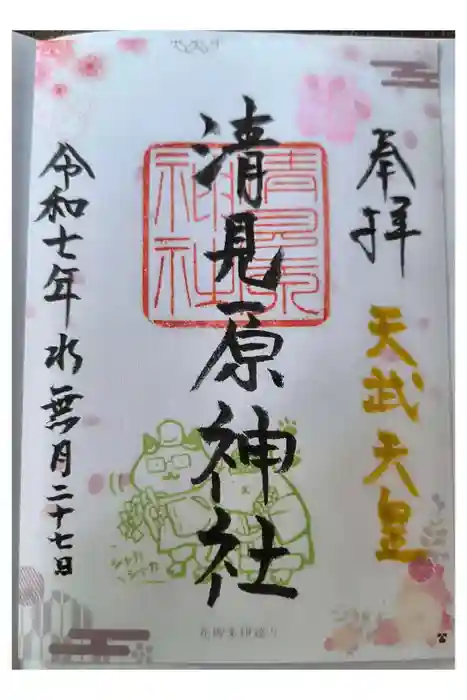 奉拝
天武天皇
清見原神社
清見原
神社
令和七年水無月二十七日